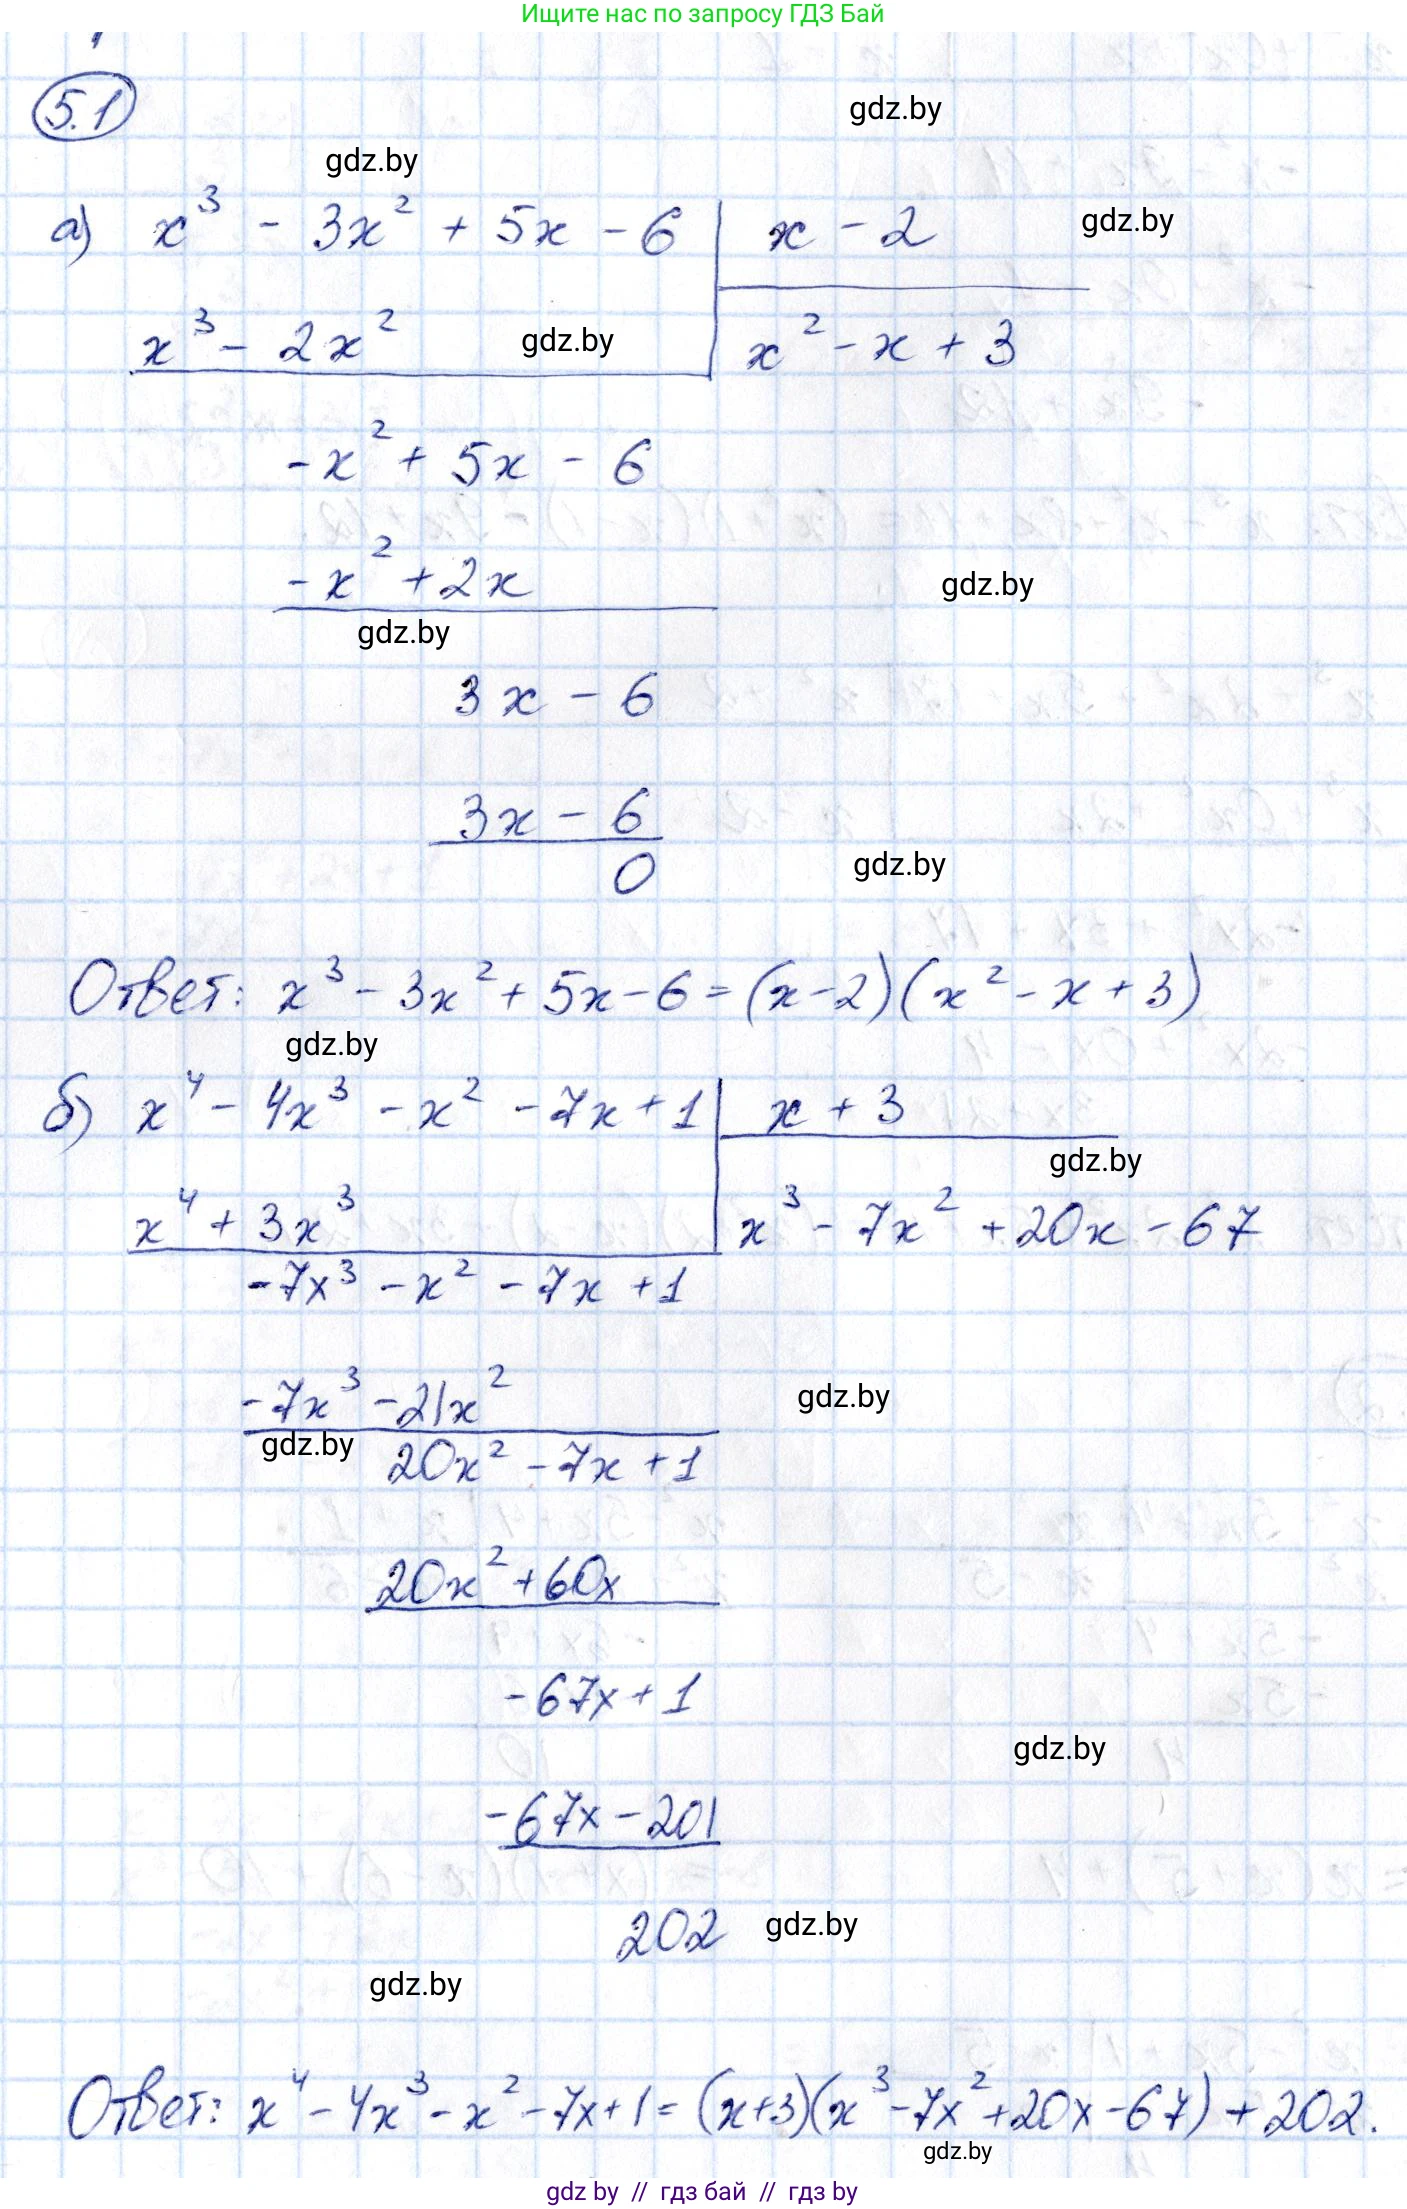 Ищите нас по запросу ГДЗ Бай
5.1
gdz.by
gdz.by
а) x³ - 3x² + 5x - 6 | x - 2
gdz.by
x³ - 2x²
gdz.by
x² - x + 3
-x² + 5x - 6
-x² + 2x
gdz.by
gdz.by
3x - 6
3x - 6
0
gdz.by
Ответ: x³ - 3x² + 5x - 6 = (x - 2)(x² - x + 3)
gdz.by
б) x⁴ - 4x³ - x² - 7x + 1 | x + 3
gdz.by
x⁴ + 3x³
x³ - 7x² + 20x - 67
-7x³ - x² - 7x + 1
-7x³ - 21x²
gdz.by
gdz.by
20x² - 7x + 1
20x² + 60x
-67x + 1
gdz.by
-67x - 201
202
gdz.by
gdz.by
Ответ: x⁴ - 4x³ - x² - 7x + 1 = (x+3)(x³ - 7x² + 20x - 67) + 202.
gdz.by
gdz by // гдз бай // гдз by